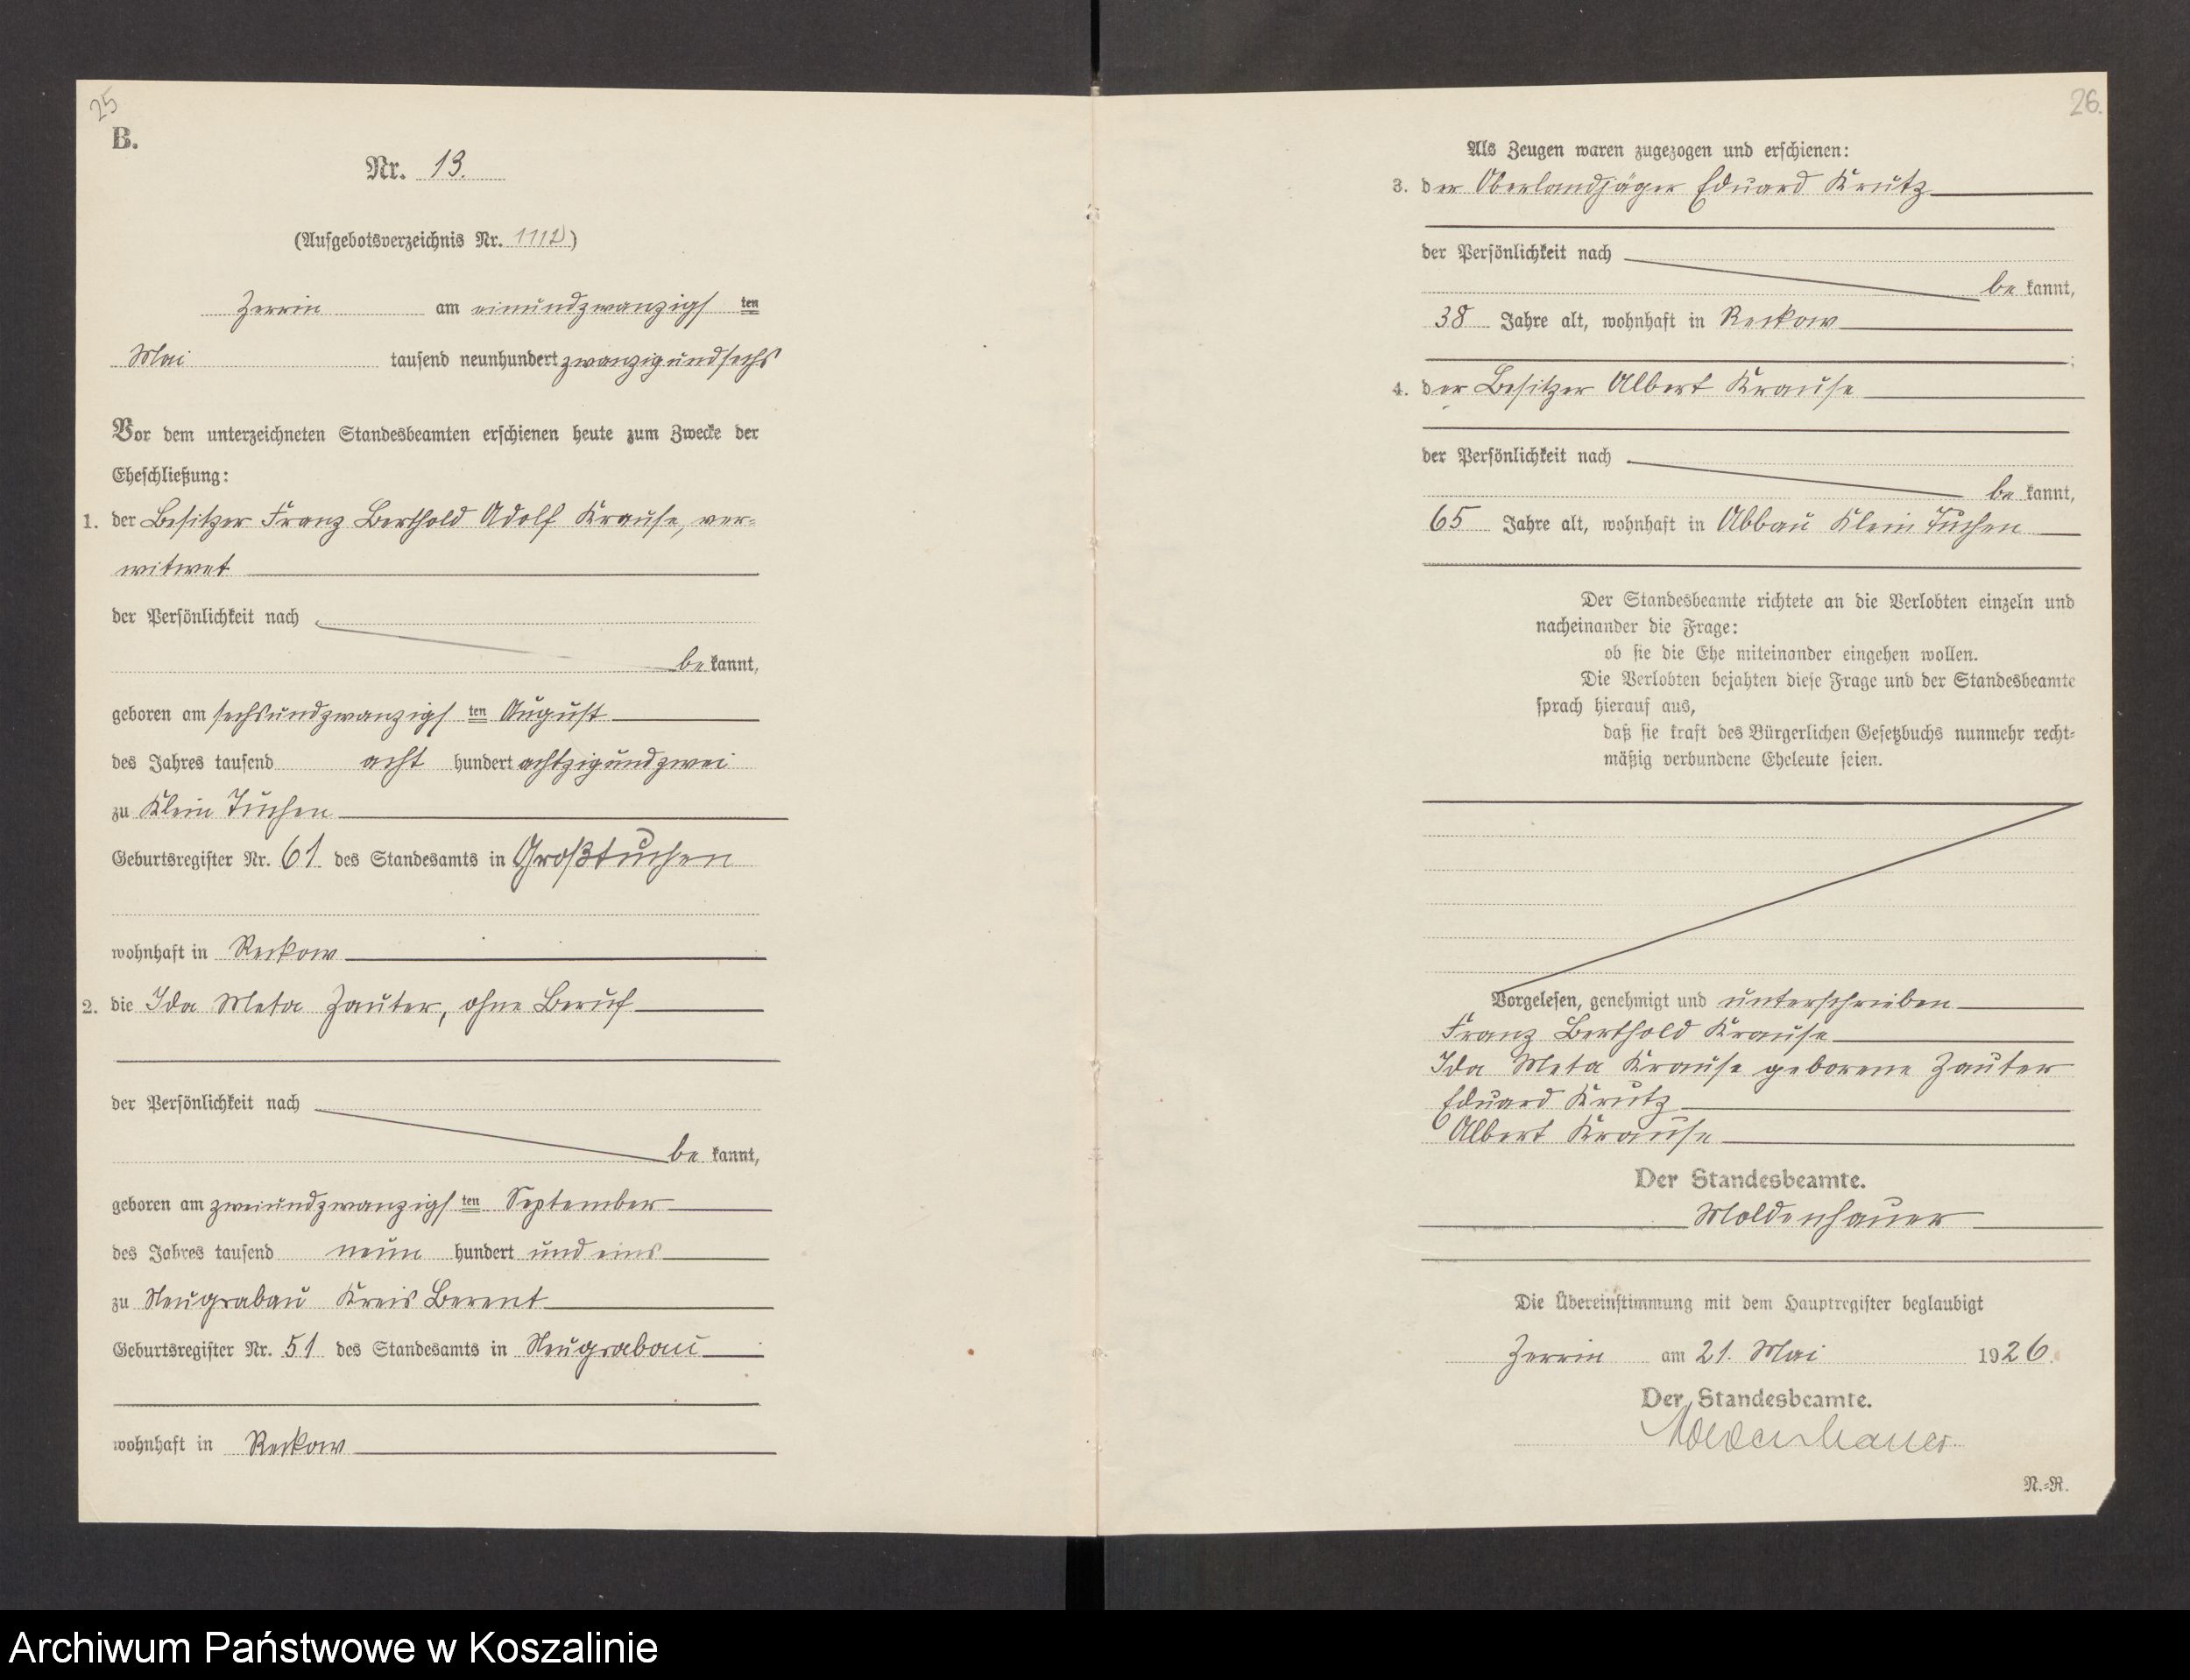 25
B.
Nr. 13.
(Aufgebotsverzeichnis Nr. )
Zerrin am einundzwanzigsten
Mai tausend neunhundert zwanzigundsechs
Vor dem unterzeichneten Standesbeamten erschienen heute zum Zwecke der
Eheschließung:
1. der Besitzer Franz Berthold Adolf Krause, ver-
witwet
der Persönlichkeit nach
be kannt,
geboren am sechsundzwanzigsten August
des Jahres tausend acht hundert achtzigundzwei
zu Klein Tuchen
Geburtsregister Nr. 61 des Standesamts in Großtuchen
wohnhaft in Reckow
2. die Ida Meta Zauter, ohne Beruf
der Persönlichkeit nach
be kannt,
geboren am zweiundzwanzigsten September
des Jahres tausend neun hundert und eins
zu Neugrabau Kreis Berent
Geburtsregister Nr. 51 des Standesamts in Neugrabau
wohnhaft in Reckow
26.
Als Zeugen waren zugezogen und erschienen:
3. der Oberlandjäger Eduard Krutz
der Persönlichkeit nach
be kannt,
38 Jahre alt, wohnhaft in Reckow
;
4. der Besitzer Albert Krause
der Persönlichkeit nach
be kannt,
65 Jahre alt, wohnhaft in Abbau Klein Tuchen
Der Standesbeamte richtete an die Verlobten einzeln und
nacheinander die Frage:
ob sie die Ehe miteinander eingehen wollen.
Die Verlobten bejahten diese Frage und der Standesbeamte
sprach hierauf aus,
daß sie kraft des Bürgerlichen Gesetzbuchs nunmehr recht-
mäßig verbundene Eheleute seien.
Vorgelesen, genehmigt und unterschrieben
Franz Berthold Krause
Ida Meta Krause geborene Zauter
Eduard Krutz
Albert Krause
Der Standesbeamte.
Moldenhauer
Die Übereinstimmung mit dem Hauptregister beglaubigt
Zerrin am 21. Mai 1926.
Der Standesbeamte.
Moldenhauer
N.-R.
Archiwum Państwowe w Koszalinie